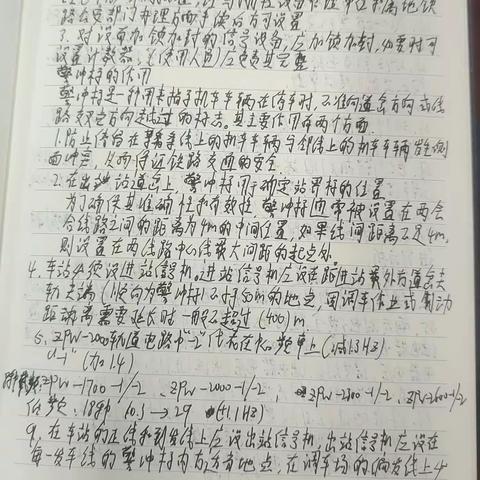 路有关部门办理方面手续后方可设置
3. 对设有加锁加封的信号设备,应加锁加封,必要时可
设置计数器,使用人员应负责其完整
警冲标的作用
警冲标是一种用来指示机车车辆在停车时,不准向道岔方向或线
路交叉方向越过的标志。其主要作用有两个方面.
1.防止停留在某条线上的机车车辆与邻线上的机车车辆发生侧
面冲突,从而保证铁路交通的安全.
2.在出站道岔上,警冲标用于确定站界标的位置.
为了确保其准确性和有效性,警冲标通常被设置在两会
合线路之间的距离为4m的中间位置,如果线间距离不足4m,
则设置在两线路中心线最大间距的起点处.
4.车站必须设进站信号机.进站信号机应设在距进站最外方道岔尖
轨尖端(顺向为警冲标)不少于50m的地点,因调车作业或制动
距离需要延长时一般不超过(400)m
5. ZPW-2000轨道电路中"-2"代表在中心频率上(减1.3HZ)
"-1"(加1.4)
ZPW-1700-1/-2、ZPW-2000-1/-2、ZPW-2300-1/-2、ZPW-2600-1/-2
低频:18种 10.3→29 (+1.1HZ)
9. 在车站的正线和到发线上应设出站信号机,出站信号机应设在
每一发车线的警冲标内方适当地点,在调车场的编发线上